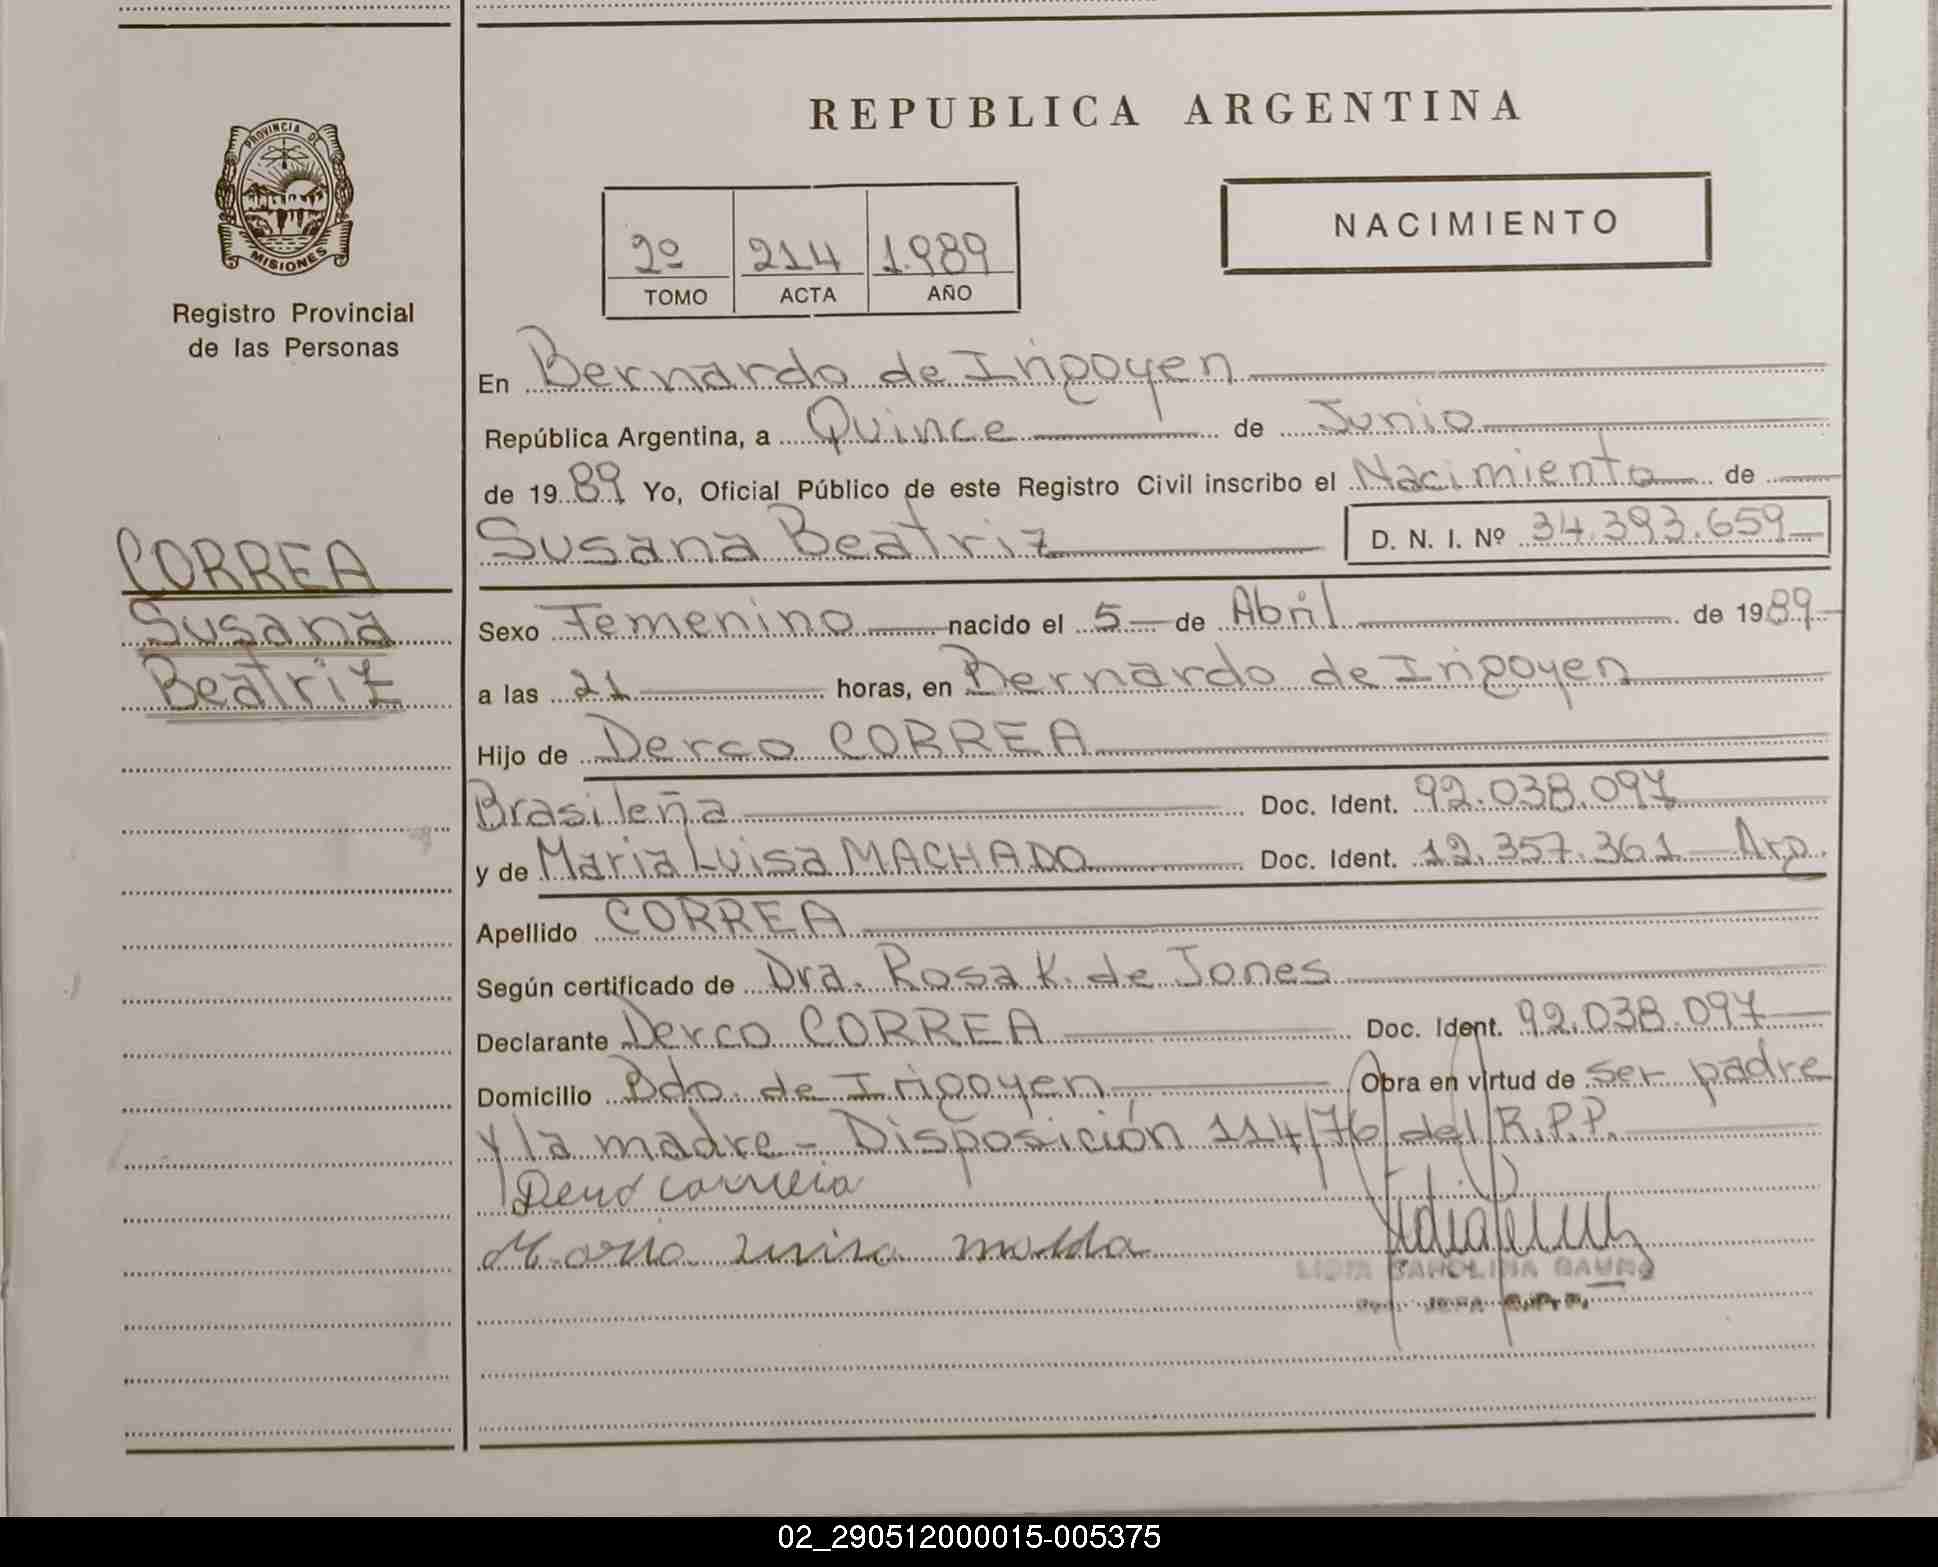 REPUBLICA ARGENTINA
PROVINCIA DE
MISIONES
Registro Provincial
de las Personas
2º 214 1.989
TOMO ACTA AÑO
NACIMIENTO
En Bernardo de Irigoyen
República Argentina, a Quince de Junio
de 1989 Yo, Oficial Público de este Registro Civil inscribo el Nacimiento de
Susana Beatriz D. N. I. Nº 34.393.659
CORREA
Susana
Beatriz
Sexo Femenino nacido el 5 de Abril de 1989
a las 21 horas, en Bernardo de Irigoyen
Hijo de Derco CORREA
Brasileña Doc. Ident. 92.038.097
y de Maria Luisa MACHADO Doc. Ident. 12.357.361 Arg.
Apellido CORREA
Según certificado de Dra. Rosa K. de Jones
Declarante Derco CORREA Doc. Ident. 92.038.097
Domicilio Bdo. de Irigoyen Obra en virtud de ser padre
y la madre - Disposición 114/76 del R.P.P.
Maria
LIDIA CAROLINA
02_290512000015-005375